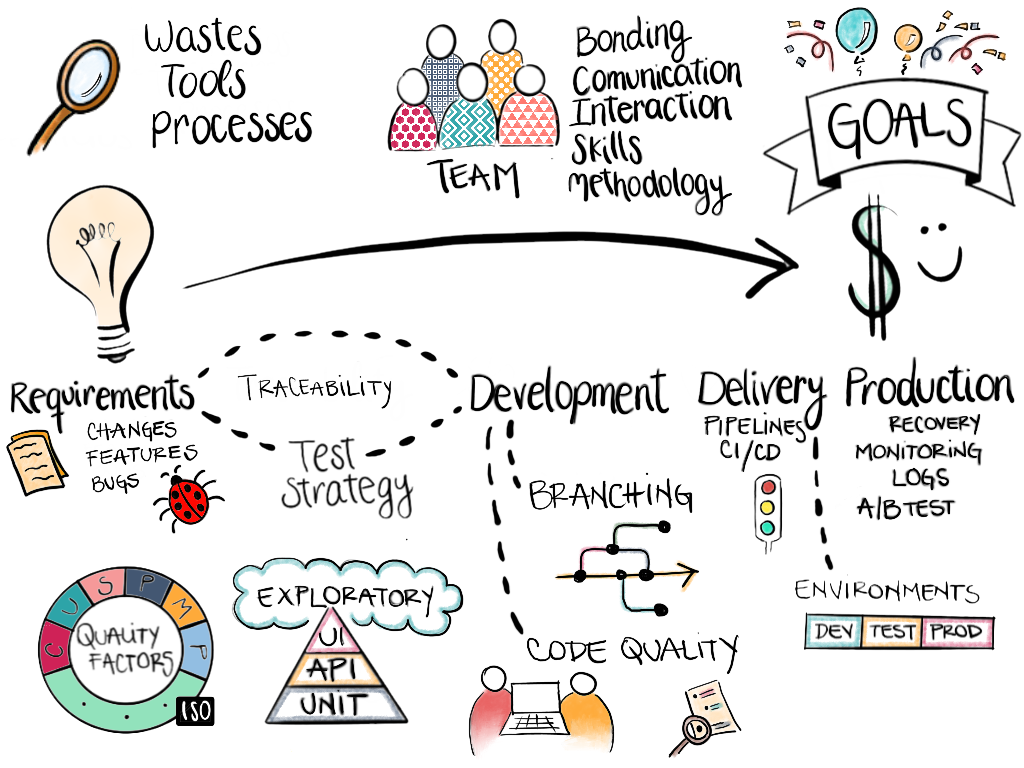 Wastes
Tools
Processes
TEAM
Bonding
Comunication
Interaction
Skills
methodology
GOALS
$
Requirements
CHANGES
FEATURES
BUGS
TRACEABILITY
Test
Strategy
Development
BRANCHING
CODE QUALITY
Delivery
PIPELINES
CI/CD
Production
RECOVERY
MONITORING
LOGS
A/B TEST
ENVIRONMENTS
DEV TEST PROD
C U S P M P
QUALITY
FACTORS
ISO
EXPLORATORY
UI
API
UNIT